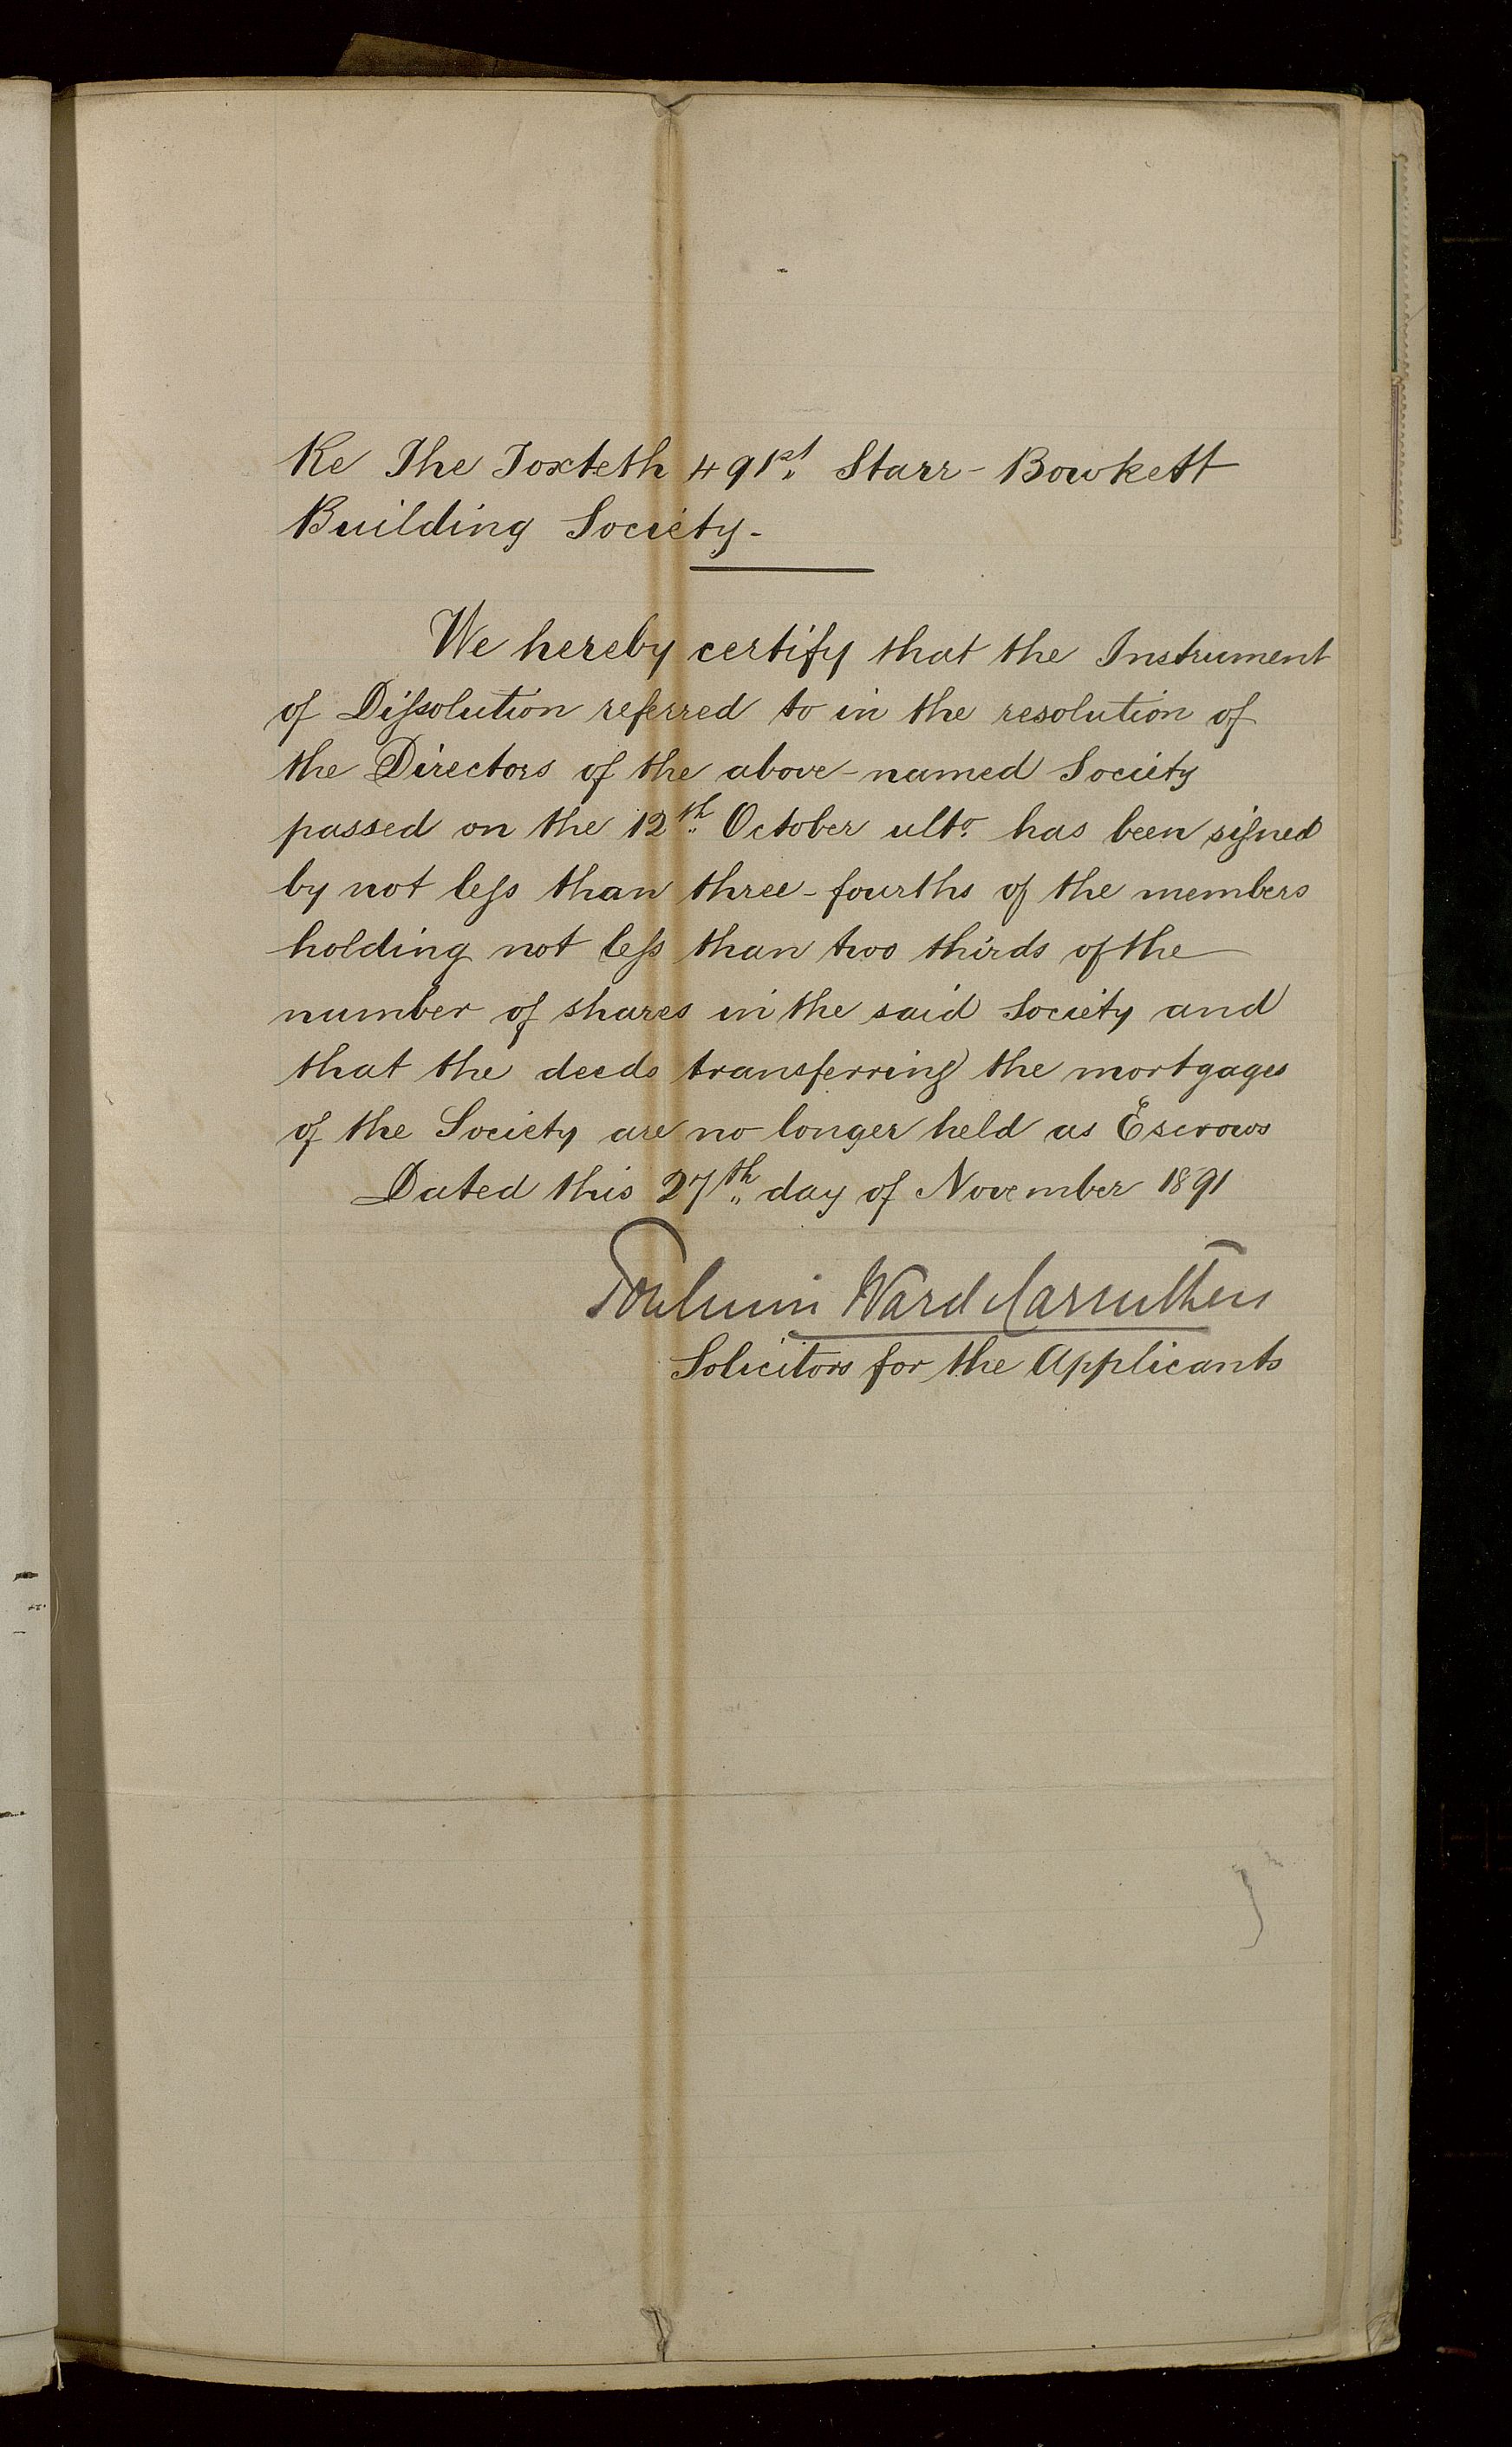 Re The Toxteth 491st Starr-Bowkett
Building Society.
We hereby certify that the Instrument
of Diſsolution referred to in the resolution of
the Directors of the above-named Society
passed on the 12th October ulto. has been signed
by not leſs than three-fourths of the members
holding not leſs than two thirds of the
number of shares in the said Society and
that the deeds transferring the mortgages
of the Society are no longer held as Escrows
Dated this 27th day of November 1891
Toulmin Ward Carruthers
Solicitors for the Applicants